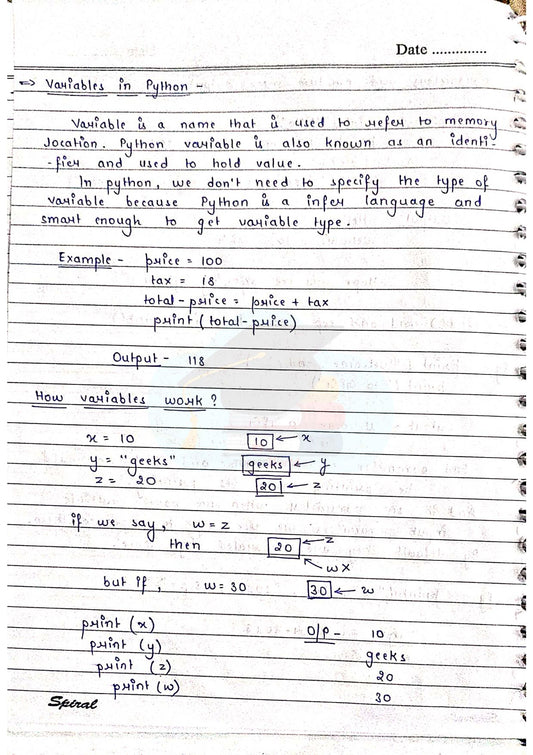 Date ..............
=> Variables in Python -
Variable is a name that is used to refer to memory
location. Python variable is also known as an identi-
-fier and used to hold value.
In python, we don't need to specify the type of
variable because Python is a infer language and
smart enough to get variable type.
Example - price = 100
tax = 18
total-price = price + tax
print (total-price)
Output - 118
How variables work ?
x = 10 10 ← x
y = "geeks" geeks ← y
z = 20 20 ← z
if we say, w = z 20 ← z
then ← w x
but if, w = 30 30 ← w
print (x) O/P - 10
print (y) geeks
print (z) 20
print (w) 30
Spiral